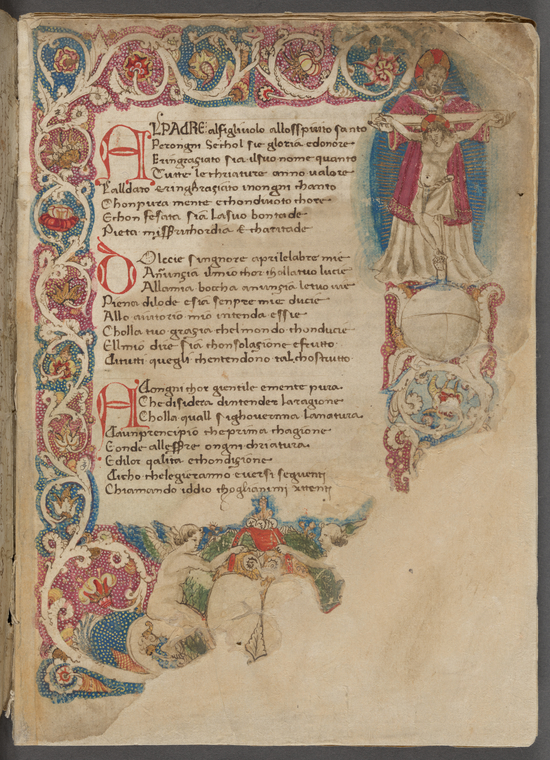 ALPADRE alfigluolo allosspirito santo
Perongni Sechol sie gloria edonore
Eringratiato sia ilsuo nome quanto
Tutte le chriature anno valore
Ealldato eringhratiato inongni chanto
Chonpura mente echondivoto chore
Echon fesata sia Lasuo bontade
Pieta missericordia E charitade
Dolcie singnore aprilelabre mie
Anunzia ilmio chor chollatuo lucie
Allamia boccha anunzia letuo vie
Piena dilode esia senpre mie ducie
Allo aiutorio mio intenda essie
Cholla tuo grazia chelmondo chonducie
Ellmio dire sia chonsolazione efrutto
Ditutti quegli chentendono tal chostrutto
Adongni chor gientile emente pura
Chedisidera dintender laragione
Cholla quall sighoverna lanatura
Daunprencipio cheprima chagione
Eonde allessere ongni chriatura
Edilor qalita echondizione
Dicho chelegieranno eversi seguenti
Chiamando iddio choglianimi attenti